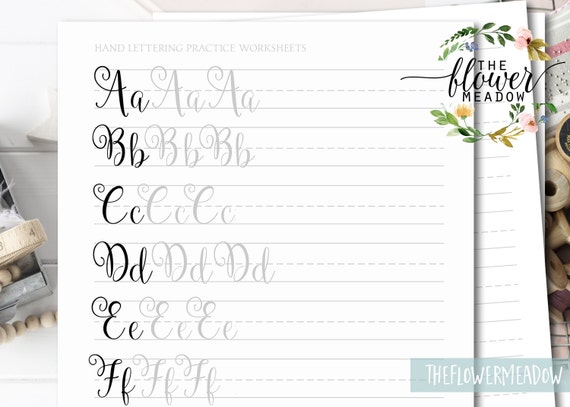 HAND LETTERING PRACTICE WORKSHEETS
THE
flower
MEADOW
Aa Aa Aa
Bb Bb Bb
Cc Cc Cc
Dd Dd Dd
Ee Ee Ee
Ff Ff Ff
THEFLOWERMEADOW